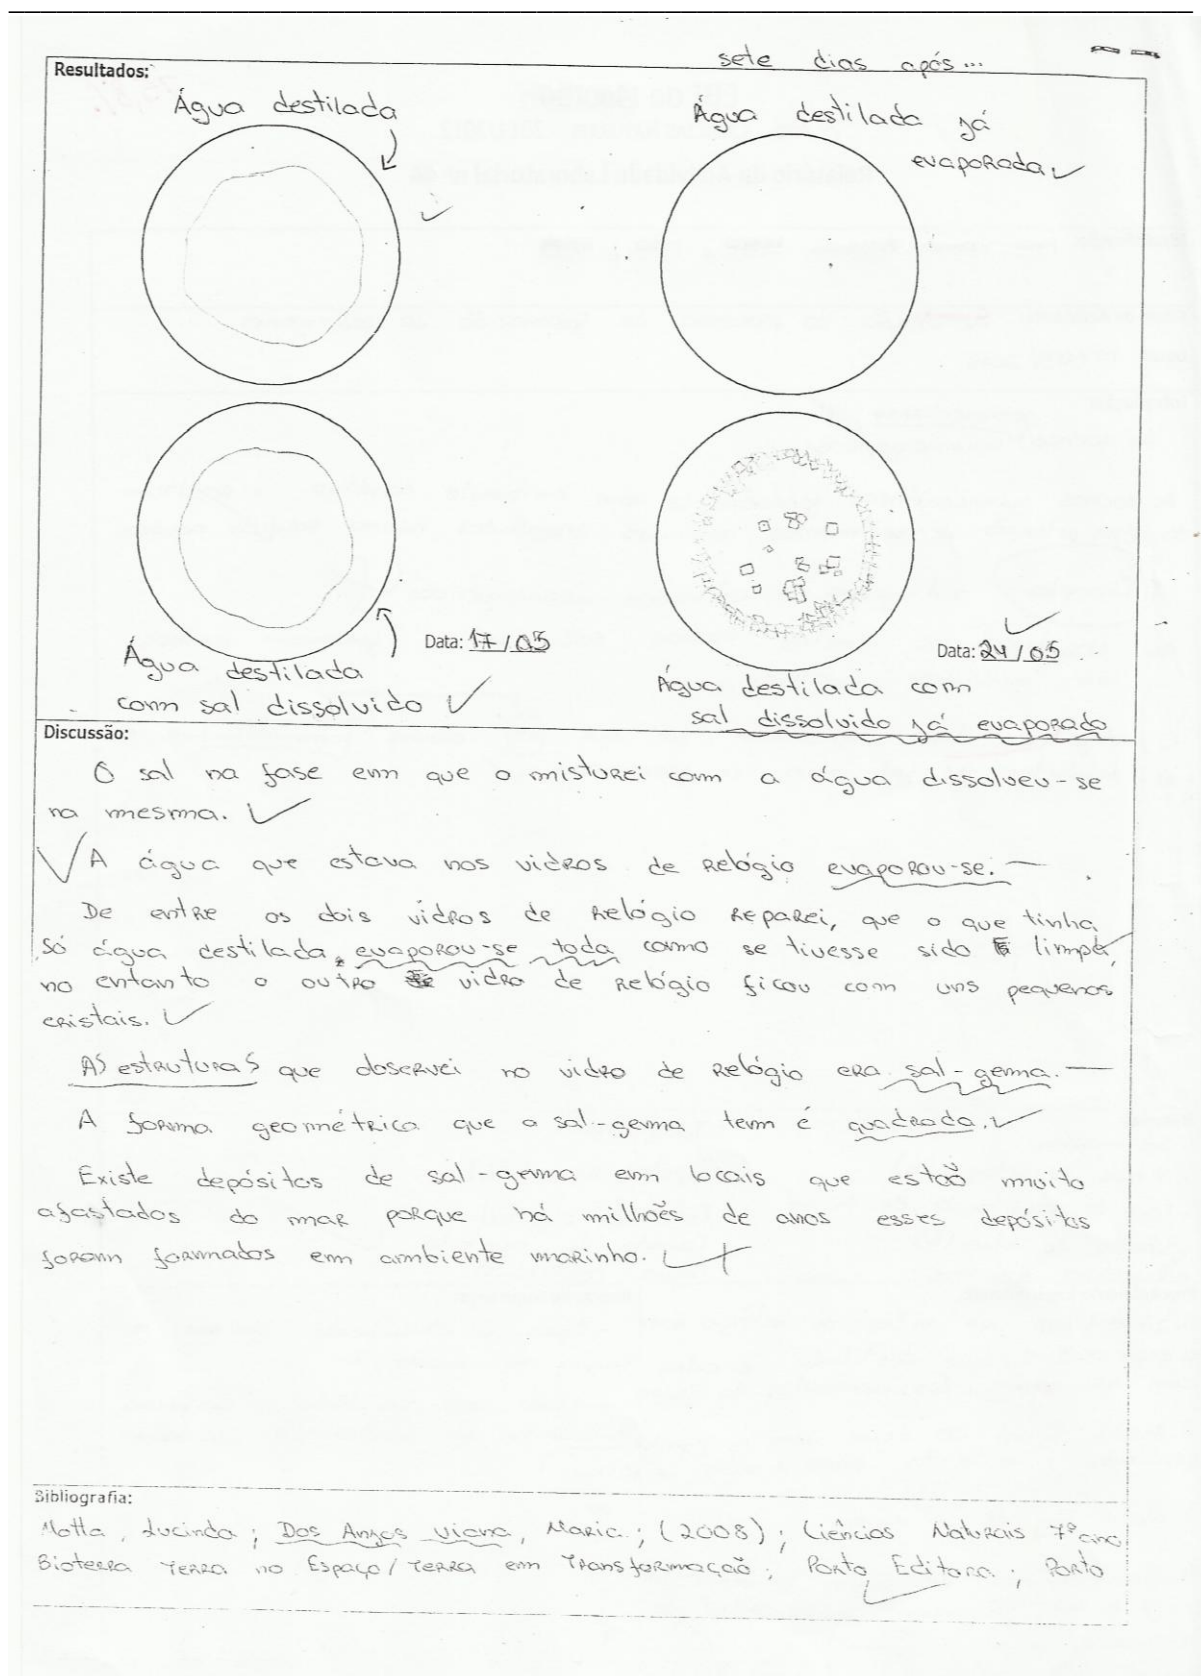 sete dias após...
Resultados:
Água destilada
Água destilada já
evaporada
Data: 17/05
Data: 24/05
Água destilada
com sal dissolvido
Água destilada com
sal dissolvido já evaporado
Discussão:
O sal na fase em que o misturei com a água dissolveu-se
na mesma.
A água que estava nos vidros de relógio evaporou-se.
De entre os dois vidros de relógio reparei, que o que tinha
só água destilada, evaporou-se toda como se tivesse sido limpa,
no entanto o outro vidro de relógio ficou com uns pequenos
cristais.
As estruturas que observei no vidro de relógio era sal-gema.
A forma geométrica que o sal-gema tem é quadrada.
Existe depósitos de sal-gema em locais que estão muito
afastados do mar porque há milhões de anos esses depósitos
foram formados em ambiente marinho.
Bibliografia:
Motta, Lucinda; Dos Anjos Viana, Maria; (2008); Ciências Naturais 7º ano
Bioterra Terra no Espaço/Terra em Transformação; Porto Editora; Porto